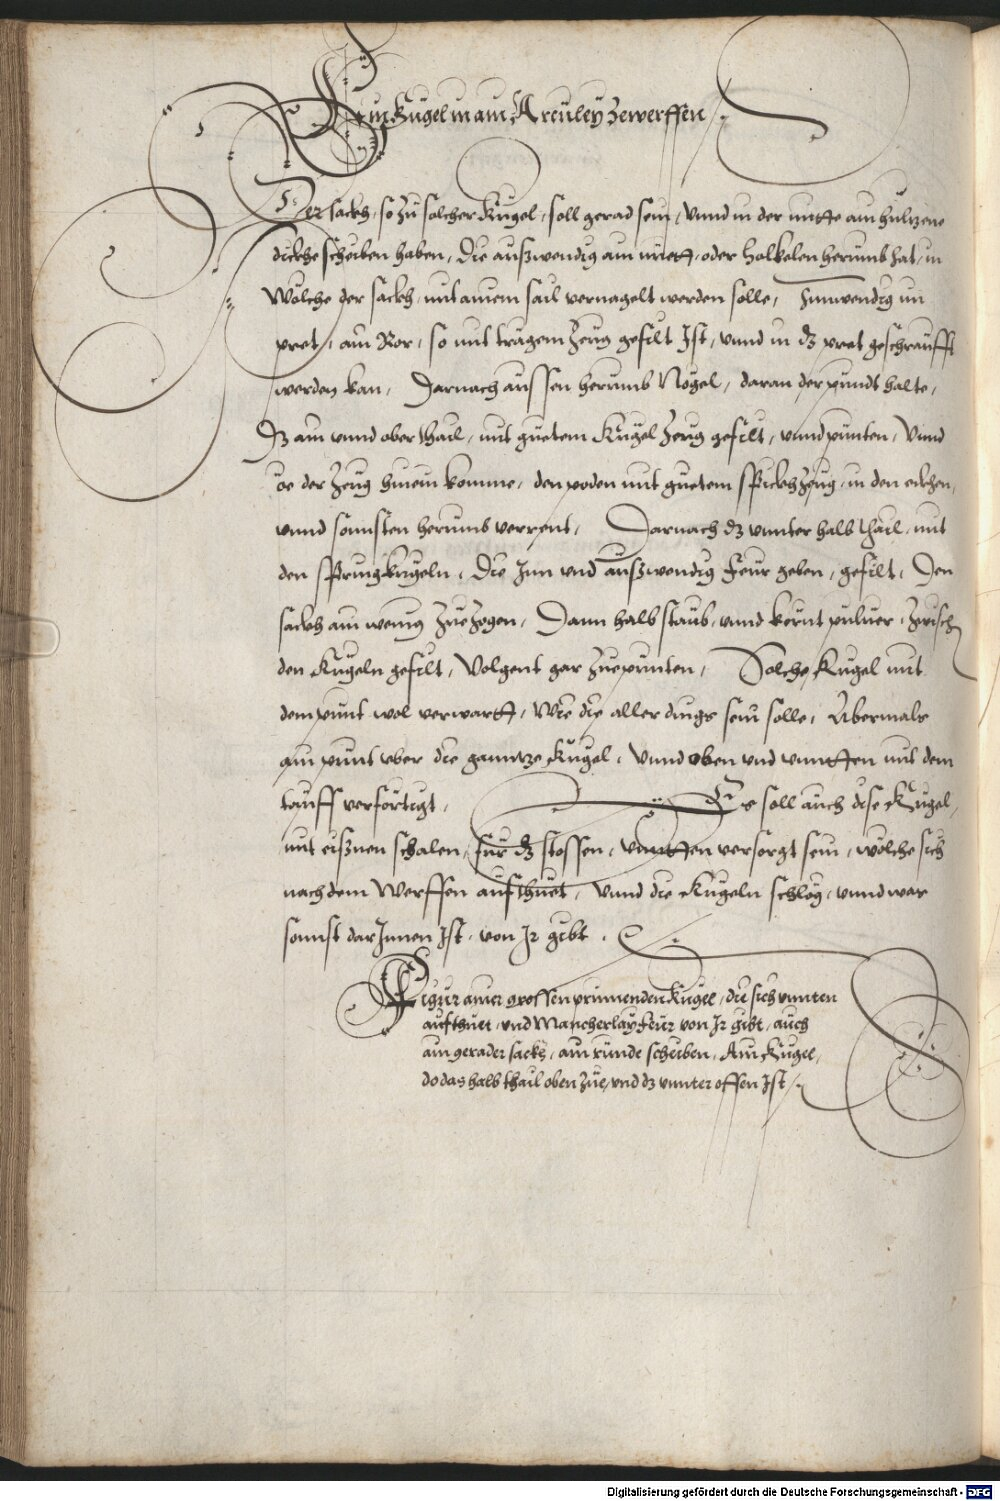 Ain Kugel in ain Areüley Zewerffen
Der sackh, so zu solcher Kugel, soll gerad sein, Vnnd in der mitte ain hültzene
dickhe scheiben haben, Die auszwendig ain oder holkelen herumb hat, in
Wölche der sackh, mit ainem sail vernagelt werden solle, Innwendig im
pret, ain Ror, so mit tragem Zeüg gefilt Ist, vnnd in dz pret geschraufft
werden kan, Darnach aussen herumb Nögel, daran der pundt halte,
Dz ain vnnd ober thail, mit guetem Kugel Zeug gefilt, vnnd punten, Vnnd
ee der Zeug hinein komme, den poden mit guetem Zeug, in den eckhen,
vnnd sonnsten herumb verrent, Darnach dz vnnter halb thail, mit
den sprungkugeln, Die Inn vnd auszwendig feur geben, gefilt, Den
sackh ain wenig zuezogen, Dann halb staub, vnnd kernt puluer, zwisch
den Kugeln gefilt, Volgent gar zuepunten, Solche Kugel mit
dem punt wol verwartt, Wie die aller dings sein solle, Abermals
ain punt vber die ganntze Kugel, Vnnd oben vnd vnntten mit dem
tauff verfertigt, Es soll auch dise Kugel,
mit eisznen schalen, für dz stossen, vnntten versorgt sein, wölche sich
nach dem Werffen aufthuet, Vnnd die Kugeln schlög, vnnd war
sonnst dar Innen Ist, von Ir gibt.
Figur ainer grossen prinnenden Kugel, die sich vnnten
aufthuet, vnd Mancherlay feur von Ir gibt, auch
ain gerader sackh, ain runde scheiben, Ain Kugel,
do das halb thail oben zue, vnd dz vnnter offen Ist
Digitalisierung gefördert durch die Deutsche Forschungsgemeinschaft - DFG